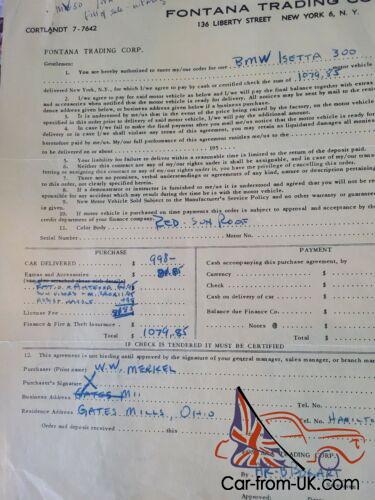 FONTANA TRADING CO
136 LIBERTY STREET NEW YORK 6, N. Y.
CORTLANDT 7-7642
FONTANA TRADING CORP.
Gentlemen:
1. You are hereby authorized to enter my/our order for one BMW ISETTA 300 motor vehicle
delivered New York, N.Y., for which I/we agree to pay by cash or certified check the sum of 1079.85
2. I/we agree to pay for said motor vehicle as below and I/we will pay the final balance together with extras
and accessories when notified that the motor vehicle is ready for delivery. All notices may be sent by mail to the
dence address given below, or business address given below if a business purchase.
3. It is understood by me/us that in the event of the price being raised by the factory, on the motor vehicle
specified in this order prior to delivery of said motor vehicle, I/we will pay the additional amount.
4. In case I/we fail to make the final payment after you mail me/us notice that the motor vehicle is ready for
delivery or in case I/we shall violate any terms of this agreement, you may retain as liquidated damages all monies
hereunder paid by me/us. My/our full performance of this agreement entitles me/us to the
to be delivered on or about 195
5. Your liability for failure to deliver within a reasonable time is limited to the return of the deposit paid.
6. Neither this contract nor any of my/our rights under it shall be assignable, and in case of my/our
letting or assigning this contract or any of my/our rights under it, you have the privilege of cancelling this order.
7. There are no promises, verbal understandings or agreements of any kind, nature or description pertaining
to this order, not clearly specified herein.
8. If a demonstrator or instructor is furnished to me/us it is understood and agreed that you will not be
sponsible for any accident which may occur during the time he is with the motor vehicle.
9. New Motor Vehicle Sold Subject to the Manufacturer's Service Policy and no other warranty or guarantee
is given.
10. If motor vehicle is purchased on time payments this order is subject to approval and acceptance by the
credit department of your finance company.
11. Color Body RED SUN ROOF
Serial Number Motor No.
PURCHASE
PAYMENT
CAR DELIVERED $ 998-
Cash accompanying this purchase agreement, by
Extras and Accessories
Currency
Check
Cash on delivery of car
License Fee
Balance due Finance Co.
Finance & Fire & Theft Insurance
Notes @
Total $ 1079.85
Total
IF CHECK IS TENDERED IT MUST BE CERTIFIED
12. This agreement is not binding until approved by the signature of your general manager, sales manager, or branch
Purchaser (Print name) W.W. MERKEL
Purchaser's Signature X
Business Address GATES MIL
Tel. No.
Residence Address GATES MILLS, OHIO
Tel. No. HAMILTO
Order and deposit received this
TRADING CORP.
By
Approved:
Car-from-UK.com